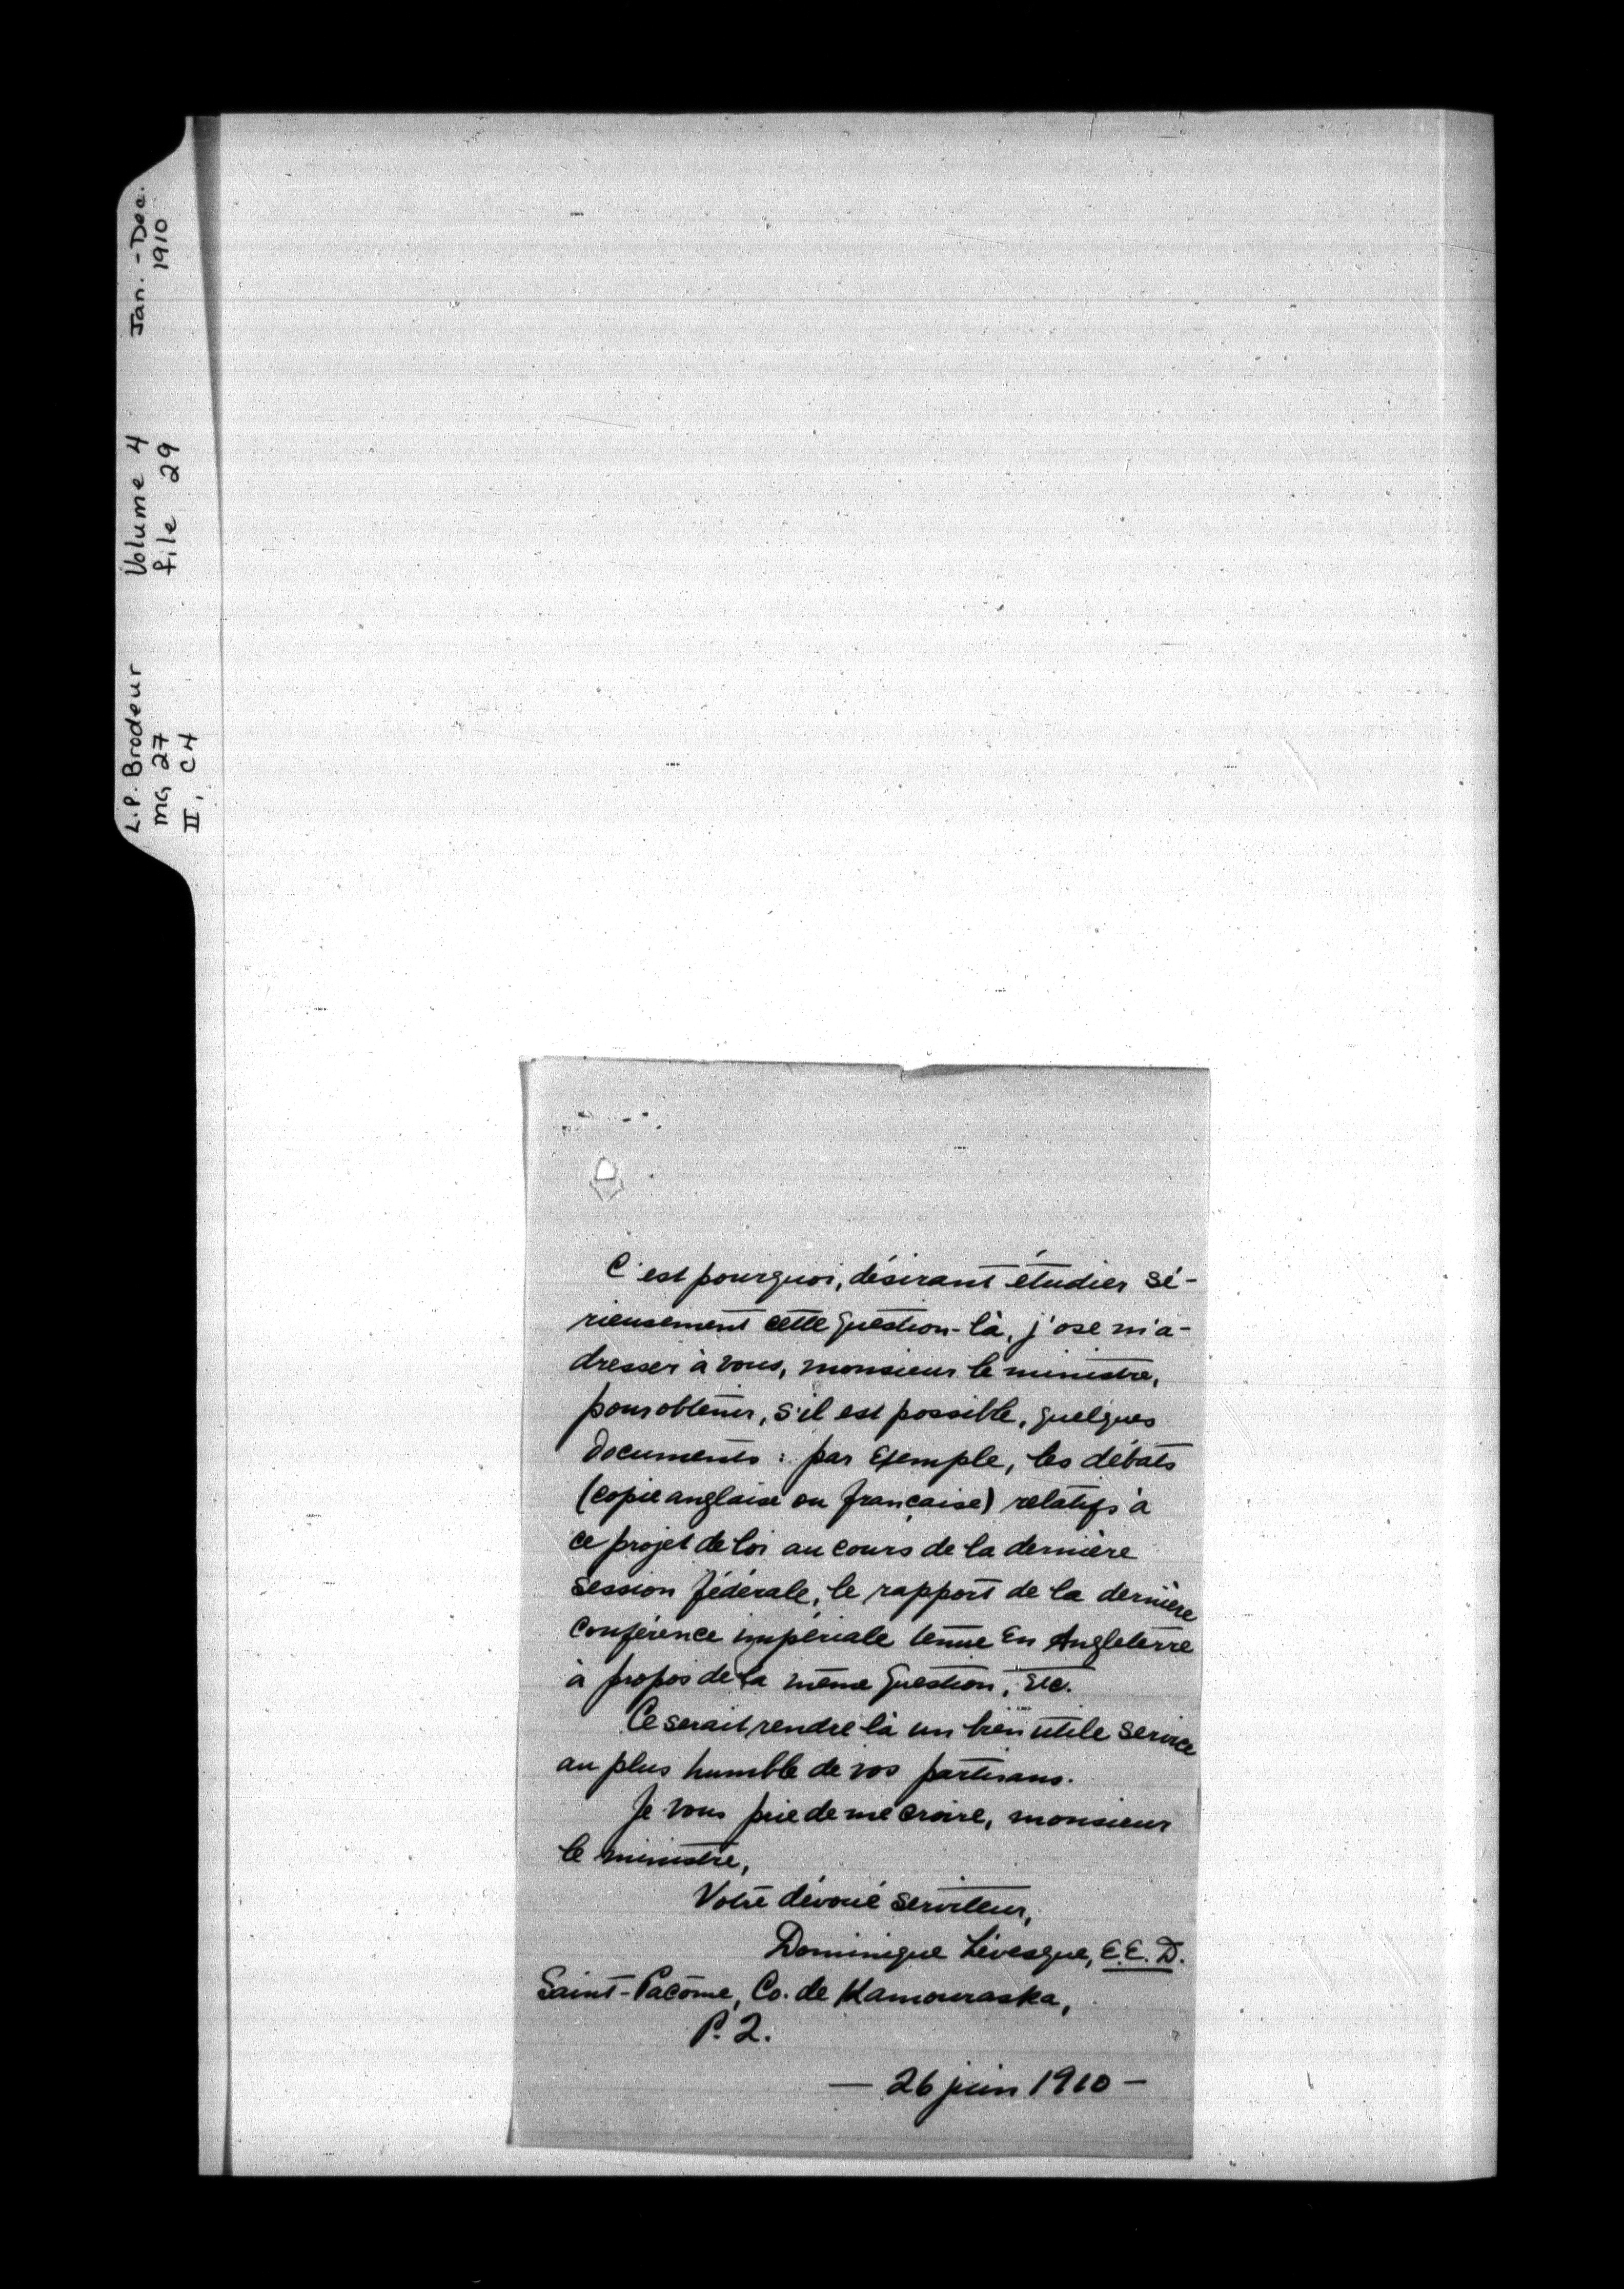 L.P. Brodeur Volume 4 Jan. - Dec.
MG 27 file 29 1910
II, C4
C'est pourquoi, désirant étudier sé-
rieusement cette question-là, j'ose m'a-
dresser à vous, monsieur le ministre,
pour obtenir, s'il est possible, quelques
documents : par exemple, les débats
(copie anglaise ou française) relatifs à
ce projet de loi au cours de la dernière
session fédérale, le rapport de la dernière
conférence impériale tenue en Angleterre
à propos de la même question, etc.
Ce serait rendre là un bien utile service
au plus humble de vos partisans.
Je vous prie de me croire, monsieur
le ministre,
Votre dévoué serviteur,
Dominique Lévesque, E.E.D.
Saint-Pacôme, Co. de Kamouraska,
P. Q.
— 26 juin 1910 —